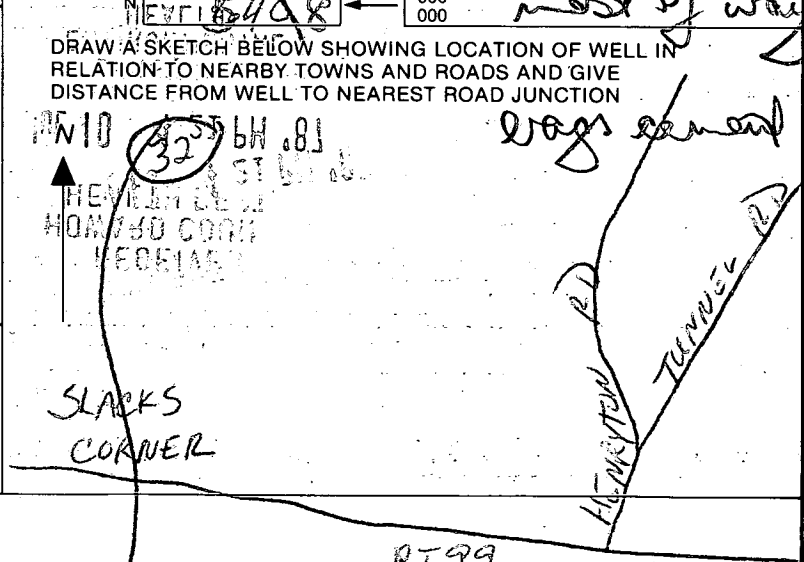 000
000
most of way
DRAW A SKETCH BELOW SHOWING LOCATION OF WELL IN
RELATION TO NEARBY TOWNS AND ROADS AND GIVE
DISTANCE FROM WELL TO NEAREST ROAD JUNCTION
N
32
bags cement
HOWARD COUN
SLACKS
CORNER
HENRYTON RD
TUNNEL RD
RT 99